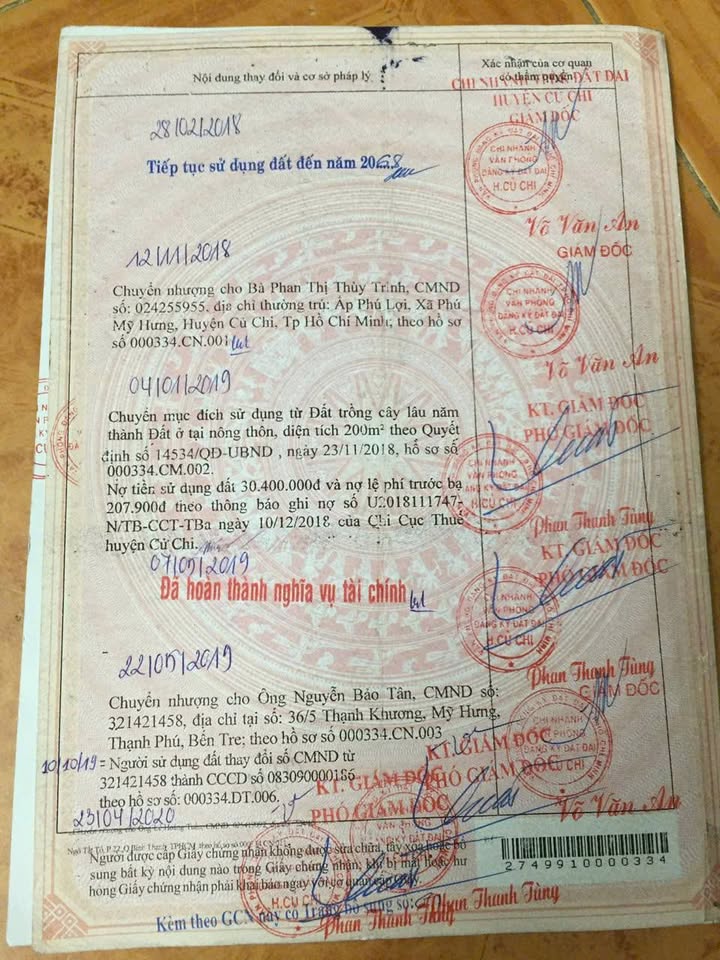 Nội dung thay đổi và cơ sở pháp lý
Xác nhận của cơ quan
có thẩm quyền
28/02/2018
Tiếp tục sử dụng đất đến năm 2068
CHI NHÁNH ĐẤT ĐAI
HUYỆN CỦ CHI
GIÁM ĐỐC
CHI NHÁNH
VĂN PHÒNG
ĐĂNG KÝ ĐẤT ĐAI
H.CỦ CHI
Võ Văn An
12/11/2018
Chuyển nhượng cho Bà Phan Thị Thùy Trinh, CMND
số: 024255955, địa chỉ thường trú: Ấp Phú Lợi, Xã Phú
Mỹ Hưng, Huyện Củ Chi, Tp Hồ Chí Minh; theo hồ sơ
số 000334.CN.001
GIÁM ĐỐC
CHI NHÁNH
VĂN PHÒNG
ĐĂNG KÝ ĐẤT ĐAI
H.CỦ CHI
Võ Văn An
04/01/2019
Chuyển mục đích sử dụng từ Đất trồng cây lâu năm
thành Đất ở tại nông thôn, diện tích 200m² theo Quyết
định số 14534/QĐ-UBND , ngày 23/11/2018, hồ sơ số
000334.CM.002.
Nợ tiền sử dụng đất 30.400.000đ và nợ lệ phí trước bạ
207.900đ theo thông báo ghi nợ số U2018111747-
N/TB-CCT-TBa ngày 10/12/2018 của Chi Cục Thuế
huyện Củ Chi.
KT. GIÁM ĐỐC
PHÓ GIÁM ĐỐC
CHI NHÁNH
VĂN PHÒNG
ĐĂNG KÝ ĐẤT ĐAI
H.CỦ CHI
Phan Thanh Tùng
Đã hoàn thành nghĩa vụ tài chính
KT. GIÁM ĐỐC
PHÓ GIÁM ĐỐC
CHI NHÁNH
VĂN PHÒNG
ĐĂNG KÝ ĐẤT ĐAI
H.CỦ CHI
Phan Thanh Tùng
22/05/2019
Chuyển nhượng cho Ông Nguyễn Bảo Tân, CMND số:
321421458, địa chỉ tại số: 36/5 Thạnh Khương, Mỹ Hưng,
Thạnh Phú, Bến Tre; theo hồ sơ số 000334.CN.003
GIÁM ĐỐC
CHI NHÁNH
VĂN PHÒNG
ĐĂNG KÝ ĐẤT ĐAI
Võ Văn An
10/10/19 = Người sử dụng đất thay đổi số CMND từ
321421458 thành CCCD số 083090000186
theo hồ sơ số: 000334.DT.006.
KT. GIÁM ĐỐC
PHÓ GIÁM ĐỐC
Phan Thanh Tùng
23/04/2020
KT. GIÁM ĐỐC
PHÓ GIÁM ĐỐC
H.CỦ CHI
Phan Thanh Tùng
Người được cấp Giấy chứng nhận không được sửa chữa, tẩy xóa hoặc bổ
sung bất kỳ nội dung nào trong Giấy chứng nhận; khi bị mất hoặc hư
hỏng Giấy chứng nhận phải khai báo ngay với cơ quan cấp
2749910000334
Kèm theo GCN này có Trang bổ sung số: